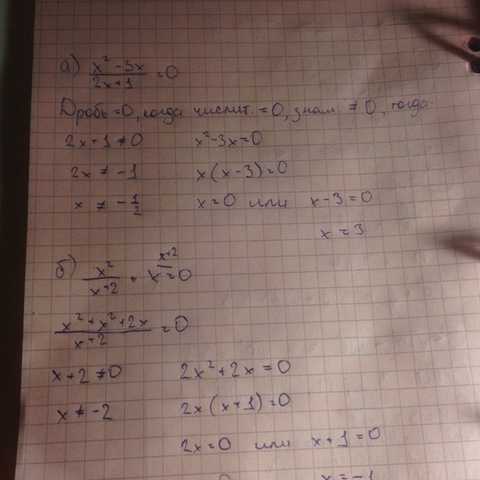 а) x² - 3x / 2x+1 = 0
Дробь =0, когда числит. = 0, знам ≠ 0, тогда
2x + 1 ≠ 0 x² - 3x = 0
2x ≠ -1 x(x-3)=0
x ≠ -1/2 x=0 или x-3=0
x = 3
б) x² / x+2 + x = 0 x+2
x² + x² + 2x / x+2 = 0
x+2 ≠ 0 2x² + 2x = 0
x ≠ -2 2x(x+1)=0
2x=0 или x+1=0
x=-1